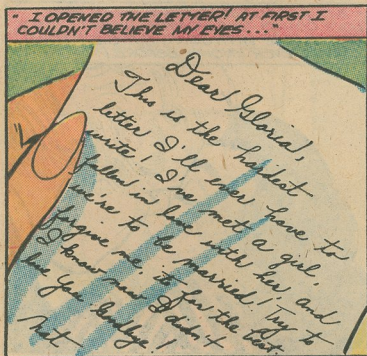 "I OPENED THE LETTER! AT FIRST I
COULDN'T BELIEVE MY EYES..."
Dear Gloria,
This is the hardest
letter I'll ever have to
write! I've met a girl,
fallen in love with her, and
we're to be married! Try to
forgive me, it's for the best.
I know now I didn't
love you. Goodbye!
Nat